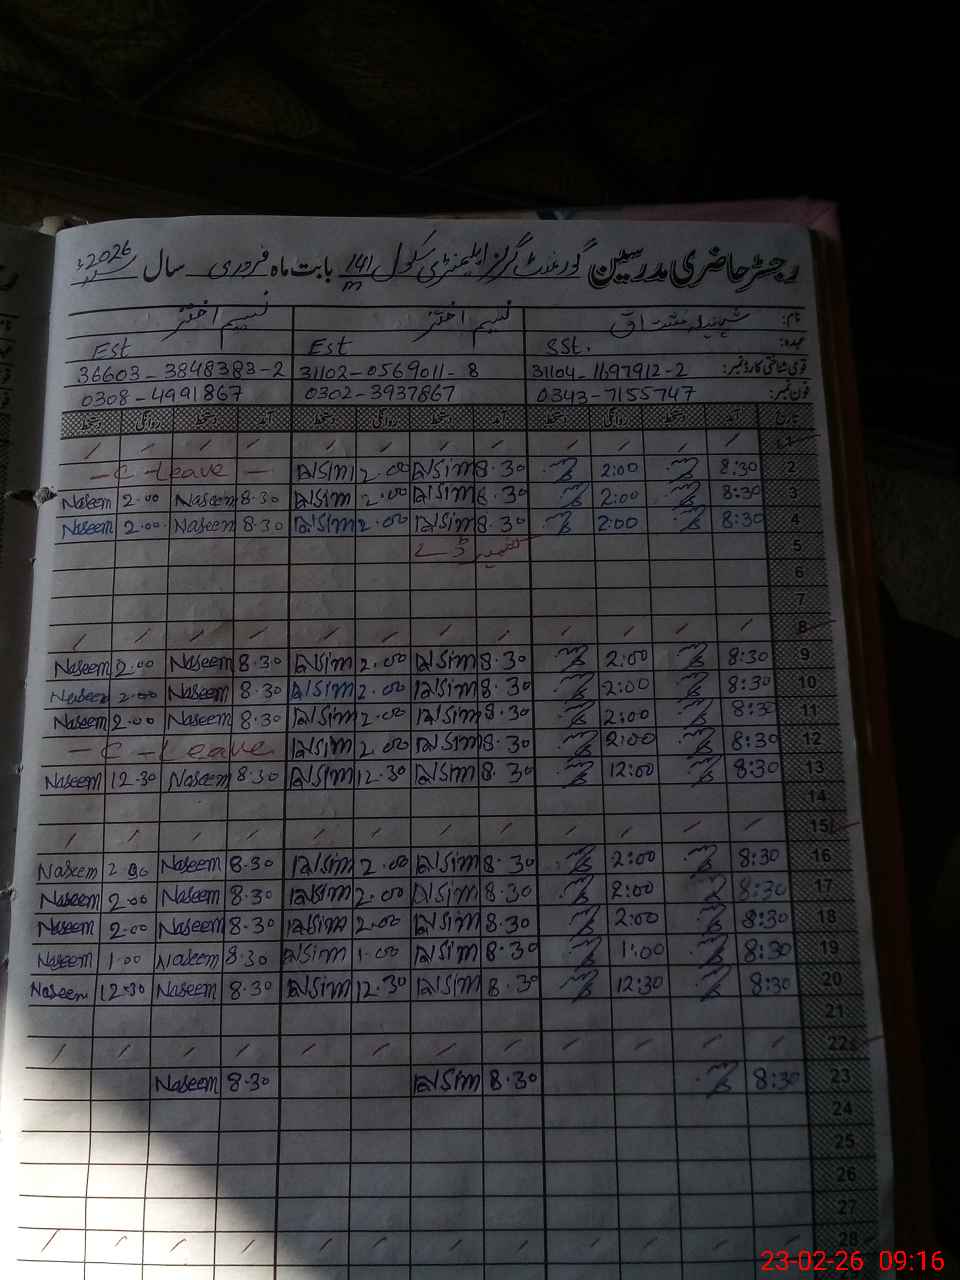 رجسٹر حاضری مدرسین گورنمنٹ گرلز ایلیمنٹری سکول 141/m بابت ماہ فروری سال 2026ء
نام: شہنیلہ مشتاق نسیم اختر نسیم اختر
عہدہ: SST. Est Est
قومی شناختی کارڈ نمبر: 31104-1197912-2 31102-0569011-8 36603-3848383-2
فون نمبر: 0343-7155747 0302-3937867 0308-4991867
تاریخ آمد دستخط روانگی دستخط آمد دستخط روانگی دستخط آمد دستخط روانگی دستخط
1
2 8:30 2:00 8.30 2.00 - C - Leave -
3 8:30 2:00 8.30 2.00 8.30 Naseem 2.00 Naseem
4 8:30 2:00 8.30 2.00 8.30 Naseem 2.00 Naseem
5
6
7
8
9 8:30 2:00 8.30 2.00 8.30 Naseem 2.00 Naseem
10 8:30 2:00 8.30 2.00 8.30 Naseem 2.00 Naseem
11 8:30 2:00 8.30 2.00 8.30 Naseem 2.00 Naseem
12 8:30 2:00 8.30 2.00 - C - Leave
13 8:30 12:00 8.30 12.30 8.30 Naseem 12.30 Naseem
14
15
16 8:30 2:00 8.30 2.00 8.30 Naseem 2.00 Naseem
17 8:30 2:00 8.30 2.00 8.30 Naseem 2.00 Naseem
18 8:30 2:00 8.30 2.00 8.30 Naseem 2.00 Naseem
19 8:30 1:00 8.30 1.00 8.30 Naseem 1.00 Naseem
20 8:30 12:30 8.30 12.30 8.30 Naseem 12.30 Naseem
21
22
23 8:30 8.30 8.30 Naseem
24
25
26
27
28
23-02-26 09:16